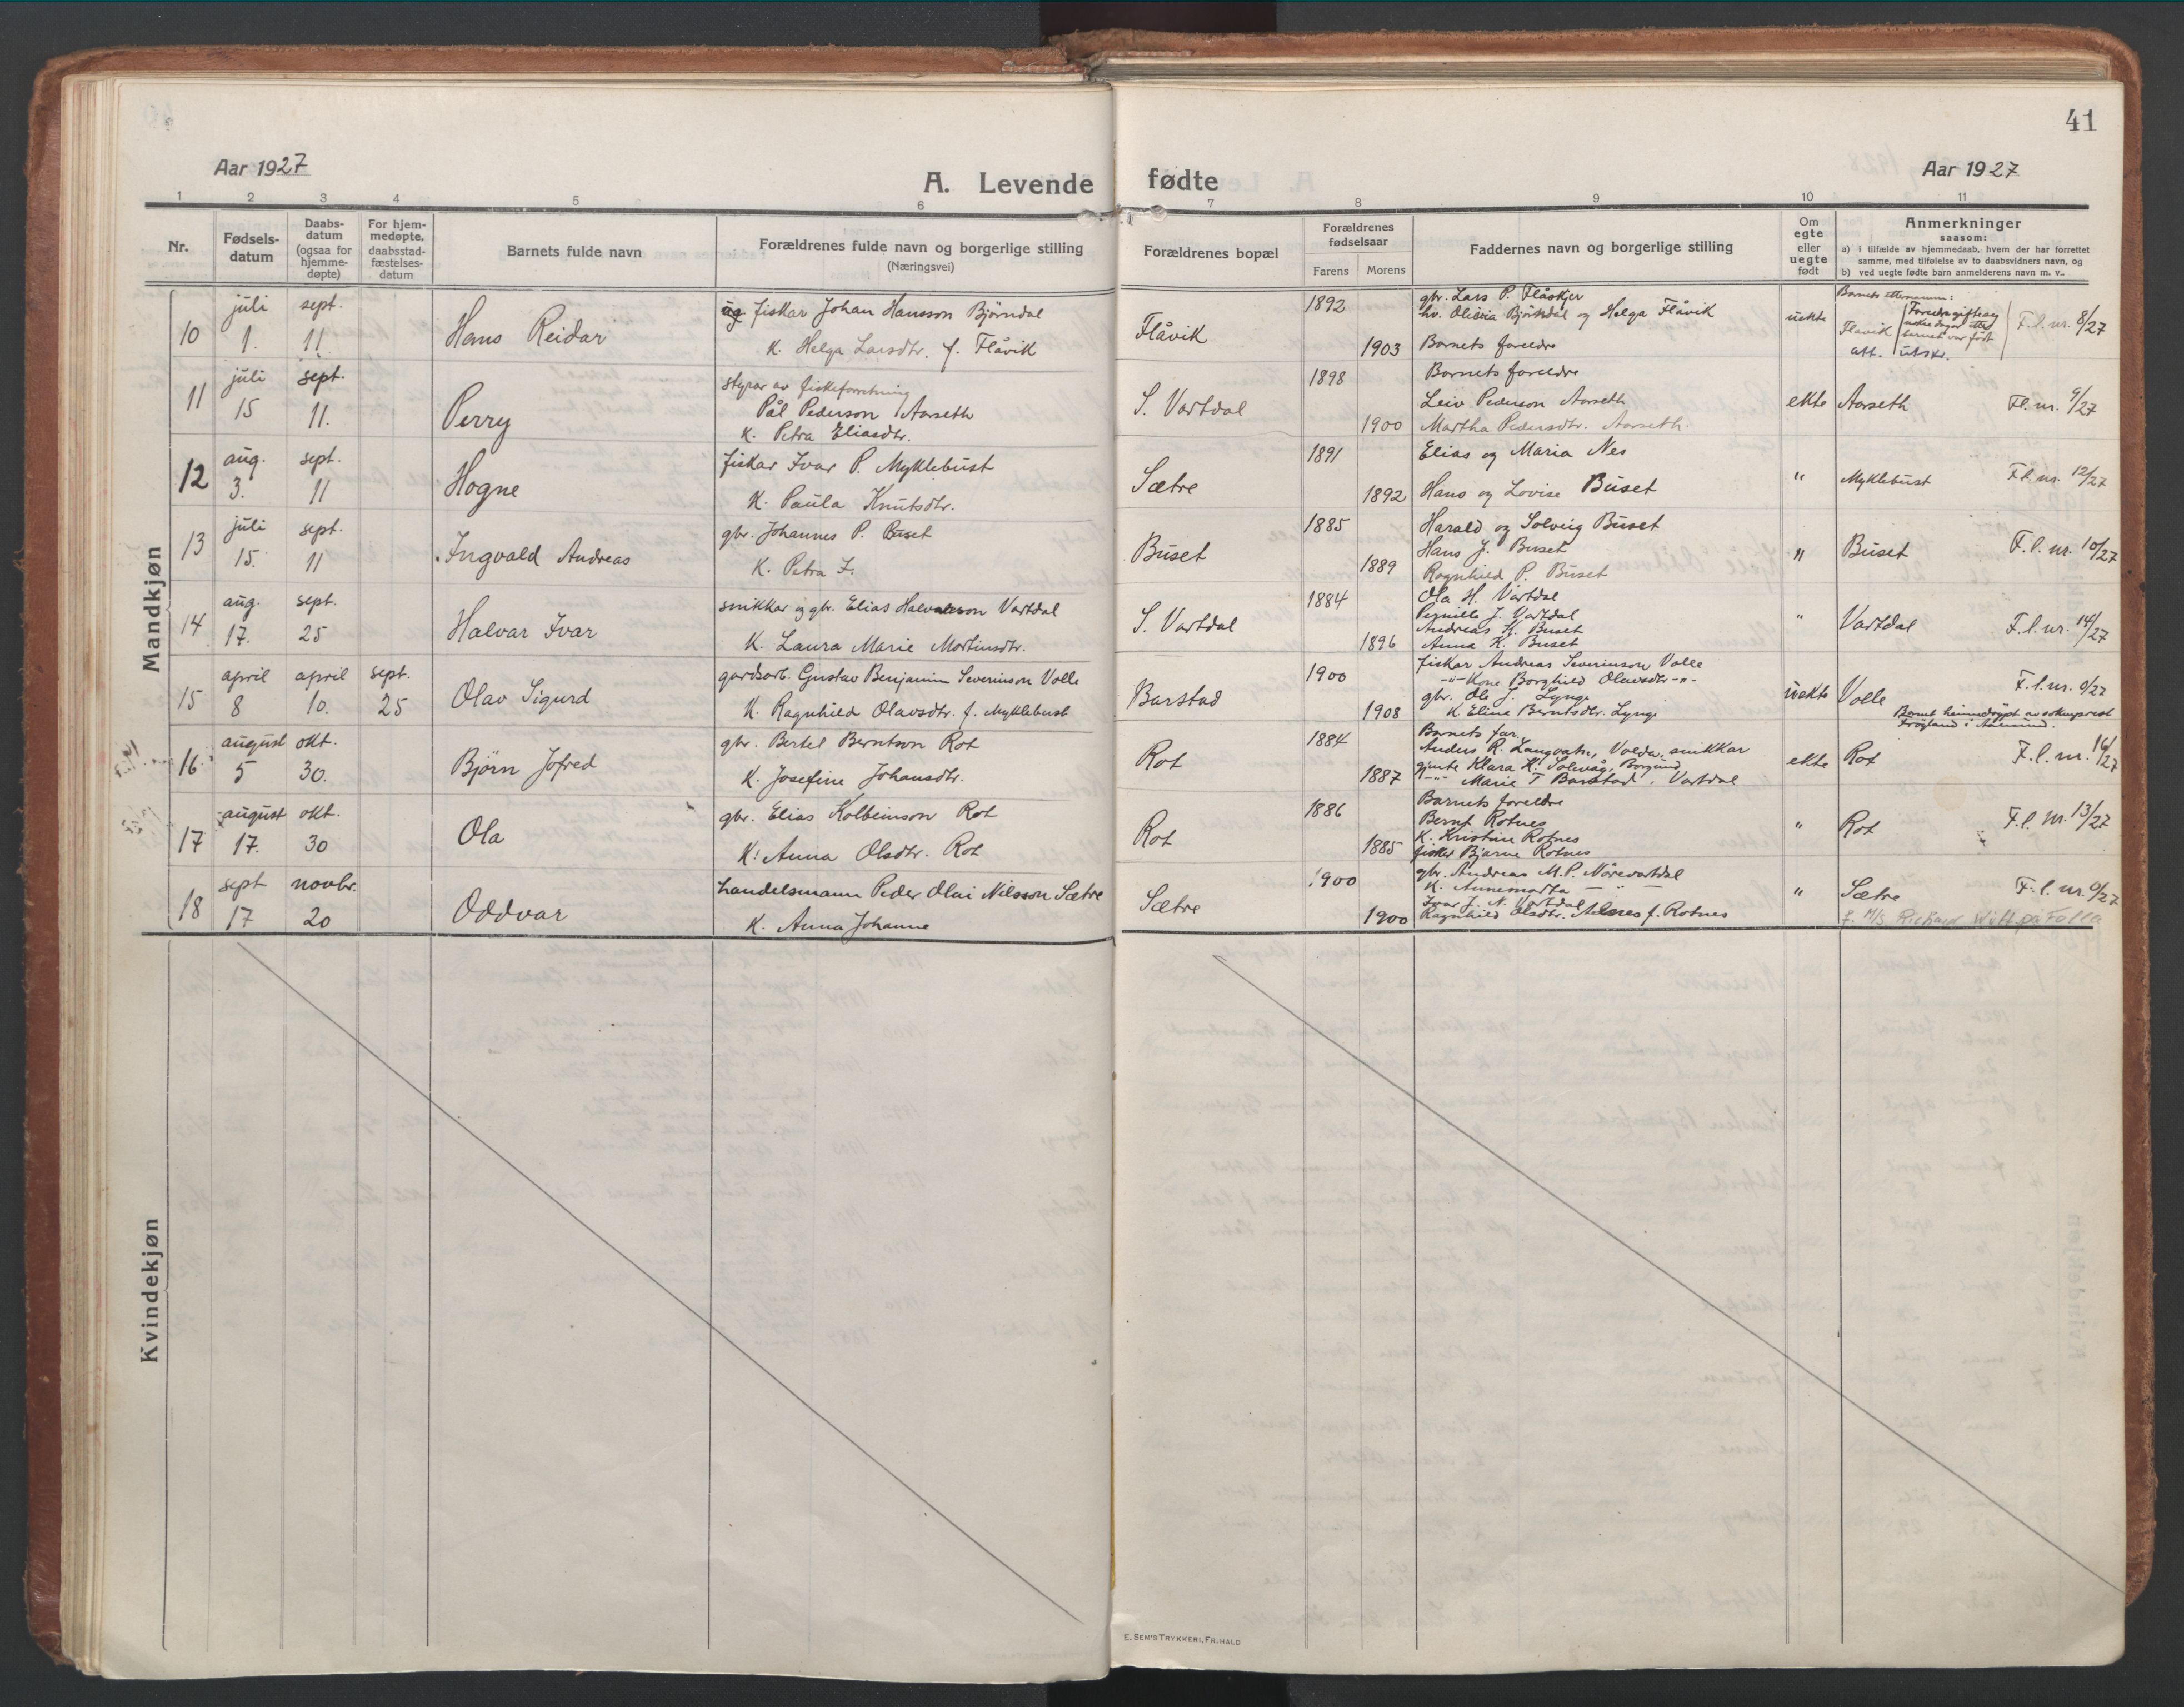 41
Aar 1927
A. Levende fødte
Aar 1927
1 2 3 4 5 6 7 8 9 10 11
Nr.
Fødsels-
datum
Daabs-
datum
(ogsaa for
hjemme-
døpte)
For hjem-
medøpte,
daabsstad-
fæstelses-
datum
Barnets fulde navn
Forældrenes fulde navn og borgerlige stilling
(Næringsvei)
Forældrenes bopæl
Forældrenes
fødselsaar
Farens Morens
Faddernes navn og borgerlige stilling
Om
egte
eller
uegte
født
Anmerkninger
saasom:
a) i tilfælde av hjemmedaab, hvem der har forrettet
samme, med tilføielse av to daabsvidners navn, og
b) ved uegte fødte barn anmelderens navn m. v..
Mandkjøn
10
juli
1.
sept.
11
Hans Reidar
ug. fiskar Johan Hansson Bjørndal
K. Helga Larsdtr. f. Flåvik
Flåvik
1892
1903
gbr. Lars P. Flåskjer
hv. Olivia Bjørkdal og Helga Flåvik
Barnets foreldre
uekte
Barnets etternamn:
Flåvik
Foreldre gift
barnet var født
att. utskr.
F.l. nr. 8/27
11
juli
15
sept.
11.
Perry
styrar av fiskeforretning
Pål Pederson Aarseth
K. Petra Eliasdtr.
S. Vartdal
1898
1900
Barnets foreldre
Leiv Pederson Aarseth
Martha Pedersdtr. Aarseth.
ekte
Aarseth
Fl. nr. 9/27
12
aug.
3.
sept.
11
Hogne
fiskar Ivar P. Myklebust
K. Paula Knutsdtr.
Sætre
1891
1892
Elias og Maria Nes
Hans og Lovise Buset
"
Myklebust
Fl. nr. 12/27
13
juli
15.
sept.
11
Ingvald Andreas
gbr. Johannes P. Buset
K. Petra I.
Buset
1885
1889
Harald og Solveig Buset
Hans J. Buset
Ragnhild P. Buset
"
Buset
F.l. nr. 10/27
14
aug.
17.
sept.
25
Halvar Ivar
snikkar og gbr. Elias Halvarson Vartdal
K. Laura Marie Martinsdtr.
S. Vartdal
1884
1896
Ola H. Vartdal
Pernille J. Vartdal
Andreas K. Buset
Anna K. Buset
"
Vartdal
F.l. nr. 14/27
15
april
8
april
10.
sept.
25
Olav Sigurd
gardsarb. Gustav Benjamin Severinson Volle
K. Ragnhild Olavsdtr. f. Myklebust
Barstad
1900
1908
fiskar Andreas Severinson Volle
-"- Kone Borghild Olavsdtr -"-
gbr. Ole J. Lynge
K Eline Berntsdtr. Lynge
uekte
Volle
F.l. nr. 0/27
Barnet heimedøypt av sokneprest
Frøyland i Aamund.
16
august
5
okt.
30.
Bjørn Jofred
gbr. Bertel Berntson Rot
K. Josefine Johansdtr.
Rot
1884
1887
Barnets far
Anders R. Langvatn, Volda, snikkar
gjente Klara K. Solevåg, Borgund
-"- Marie T Barstad, Vartdal
ekte
Rot
F.l. nr. 16/27
17
august
17.
okt.
30
Ola
gbr. Elias Kolbeinson Rot
K. Anna Olsdtr. Rot
Rot
1886
1885
Barnets foreldre
Bernt Rotnes
K. Kristine Rotnes
fisker Bjarne Rotnes
"
Rot
F.l. nr. 13/27
18
sept
17
novbr.
20
Oddvar
handelsmann Peder Olai Nilsson Sætre
K. Anna Johanne
Sætre
1900
1900
gbr. Andreas M.P. Nørevartdal
K. Annemarta — " —
Ivar J. N. Vartdal
Ragnhild Olsdtr. Alnes f. Rotnes
"
Sætre
F.l. nr. 0/27
f. M/S Richard With på Folla
Kvindekjøn
E. SEM'S TRYKKERI, FR.HALD